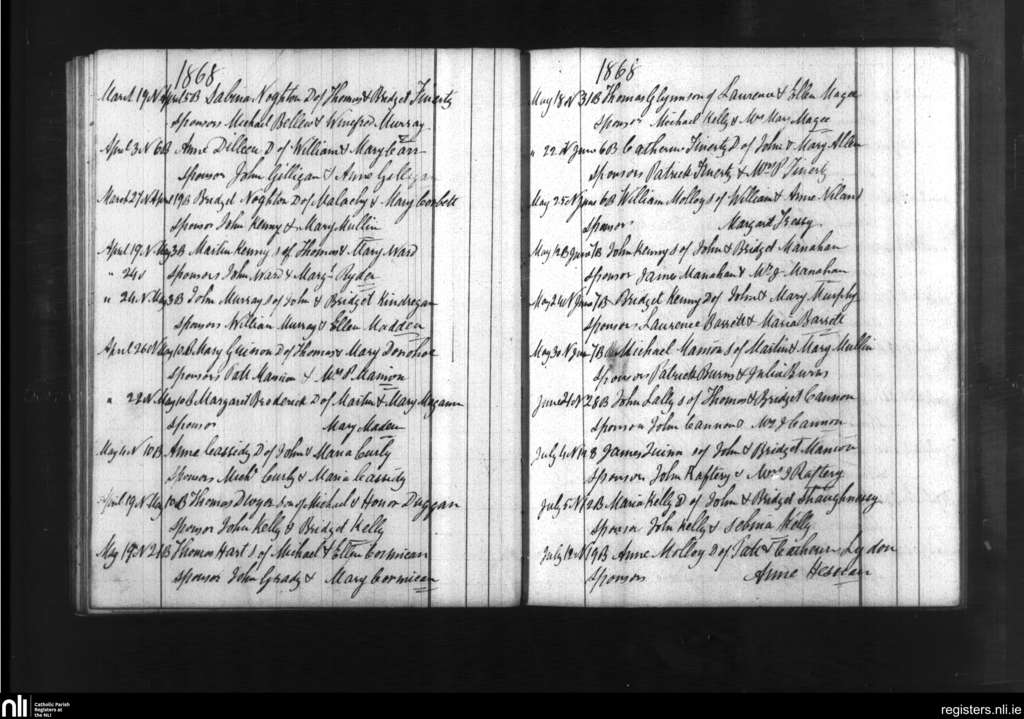 1868
March 19 N April 5 B Sabina Noghton D of Thomas & Bridget Finerty
Sponsors Michael Bellew & Winefred Murray
April 3 N 6 B Anne Dilleen D of William & Mary Carr
Sponsor John Gilligan & Anne Gilligan
March 27 N April 19 B Bridget Noghton D of Malachy & Mary Corbett
Sponsor John Kenny & Mary Mullin
April 19 N May 3 B Martin Kenny s of Thomas & Mary Ward
" 24 Sponsors John Ward & Margt Ryder
" 24 N May 3 B John Murray s of John & Bridget Kindregan
Sponsors William Murray & Ellen Madden
April 26 N May 10 B Mary D of Thomas & Mary Donohoe
Sponsors Patt Manion & Mrs P Manion
" 22 N May 10 B Margaret Broderick D of Martin & Mary
Sponsor Mary Maden
May 4 N 10 B Anne Cassidy D of John & Maria Curly
Sponsors Michl Curly & Maria Cassidy
April 19 N May 10 B Thomas Dwyer son of Michael & Honor Duggan
Sponsor John Kelly & Bridget Kelly
May 19 N 21 B Thomas Hart s of Michael & Ellen Cormican
Sponsor John Grady & Mary Cormican
1868
May 18 N 31 B Thomas Glynn son of Laurence & Ellen Magee
Sponsor Michael Kelly & Mrs Magee
" 22 N June 6 B Catherine Finerty D of John & Mary Allen
Sponsors Patrick Finerty & Mrs P Finerty
May 25 N June 6 B William Molloy s of William & Anne
Sponsor Margaret
May 12 B June 7 B John Kenny s of John & Bridget Manahan
Sponsor James Manahan & Mrs J Manahan
May 24 N June 7 B Bridget Kenny D of John & Mary Murphy
Sponsors Laurence Barrett & Maria Barrett
May 30 N June 7 B Michael Manion s of Martin & Mary Mullin
Sponsors Patrick Burns & Julia Burns
June 21 N 28 B John Lally s of Thomas & Bridget Cannon
Sponson John Cannon & Mrs J Cannon
July 4 N 12 B James Quinn s of John & Bridget Manion
Sponsors John Raftery & Mrs J Raftery
July 5 N 12 B Maria Kelly D of John & Bridget Shaughnessy
Sponsor John Kelly & Sobina Kelly
July 12 N 19 B Anne Molloy D of Patt & Cathern Lydon
Sponsors Anne
nli
Catholic Parish
Registers at
the NLI
registers.nli.ie